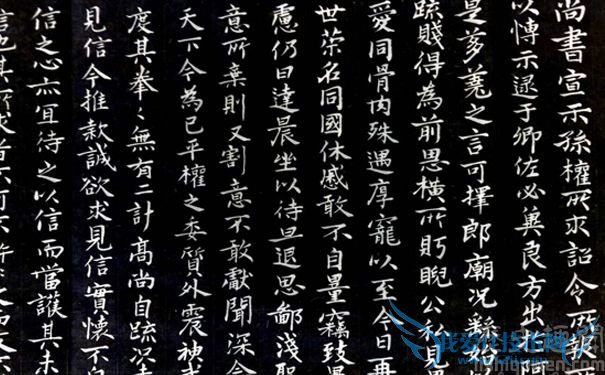 尚書宣示孫權所求詔令所報
以博示逮于卿佐必冀良方出於阿
是芻蕘之言可擇郎廟況繇始
疏賤得為前恩橫所盻睨公私見
愛同骨肉殊遇厚寵以至今日再
世榮名同國休慼敢不自量竊致愚
慮仍日達晨坐以待旦退思鄙淺聖
意所棄則又割意不敢獻聞深念
天下今為已平權之委質外震神武
度其拳〻無有二計高尚自疏況未
見信今推款誠欲求見信實懷不自
信之心亦宜待之以信而當護其未
信也其所求者不可不許許之而反不